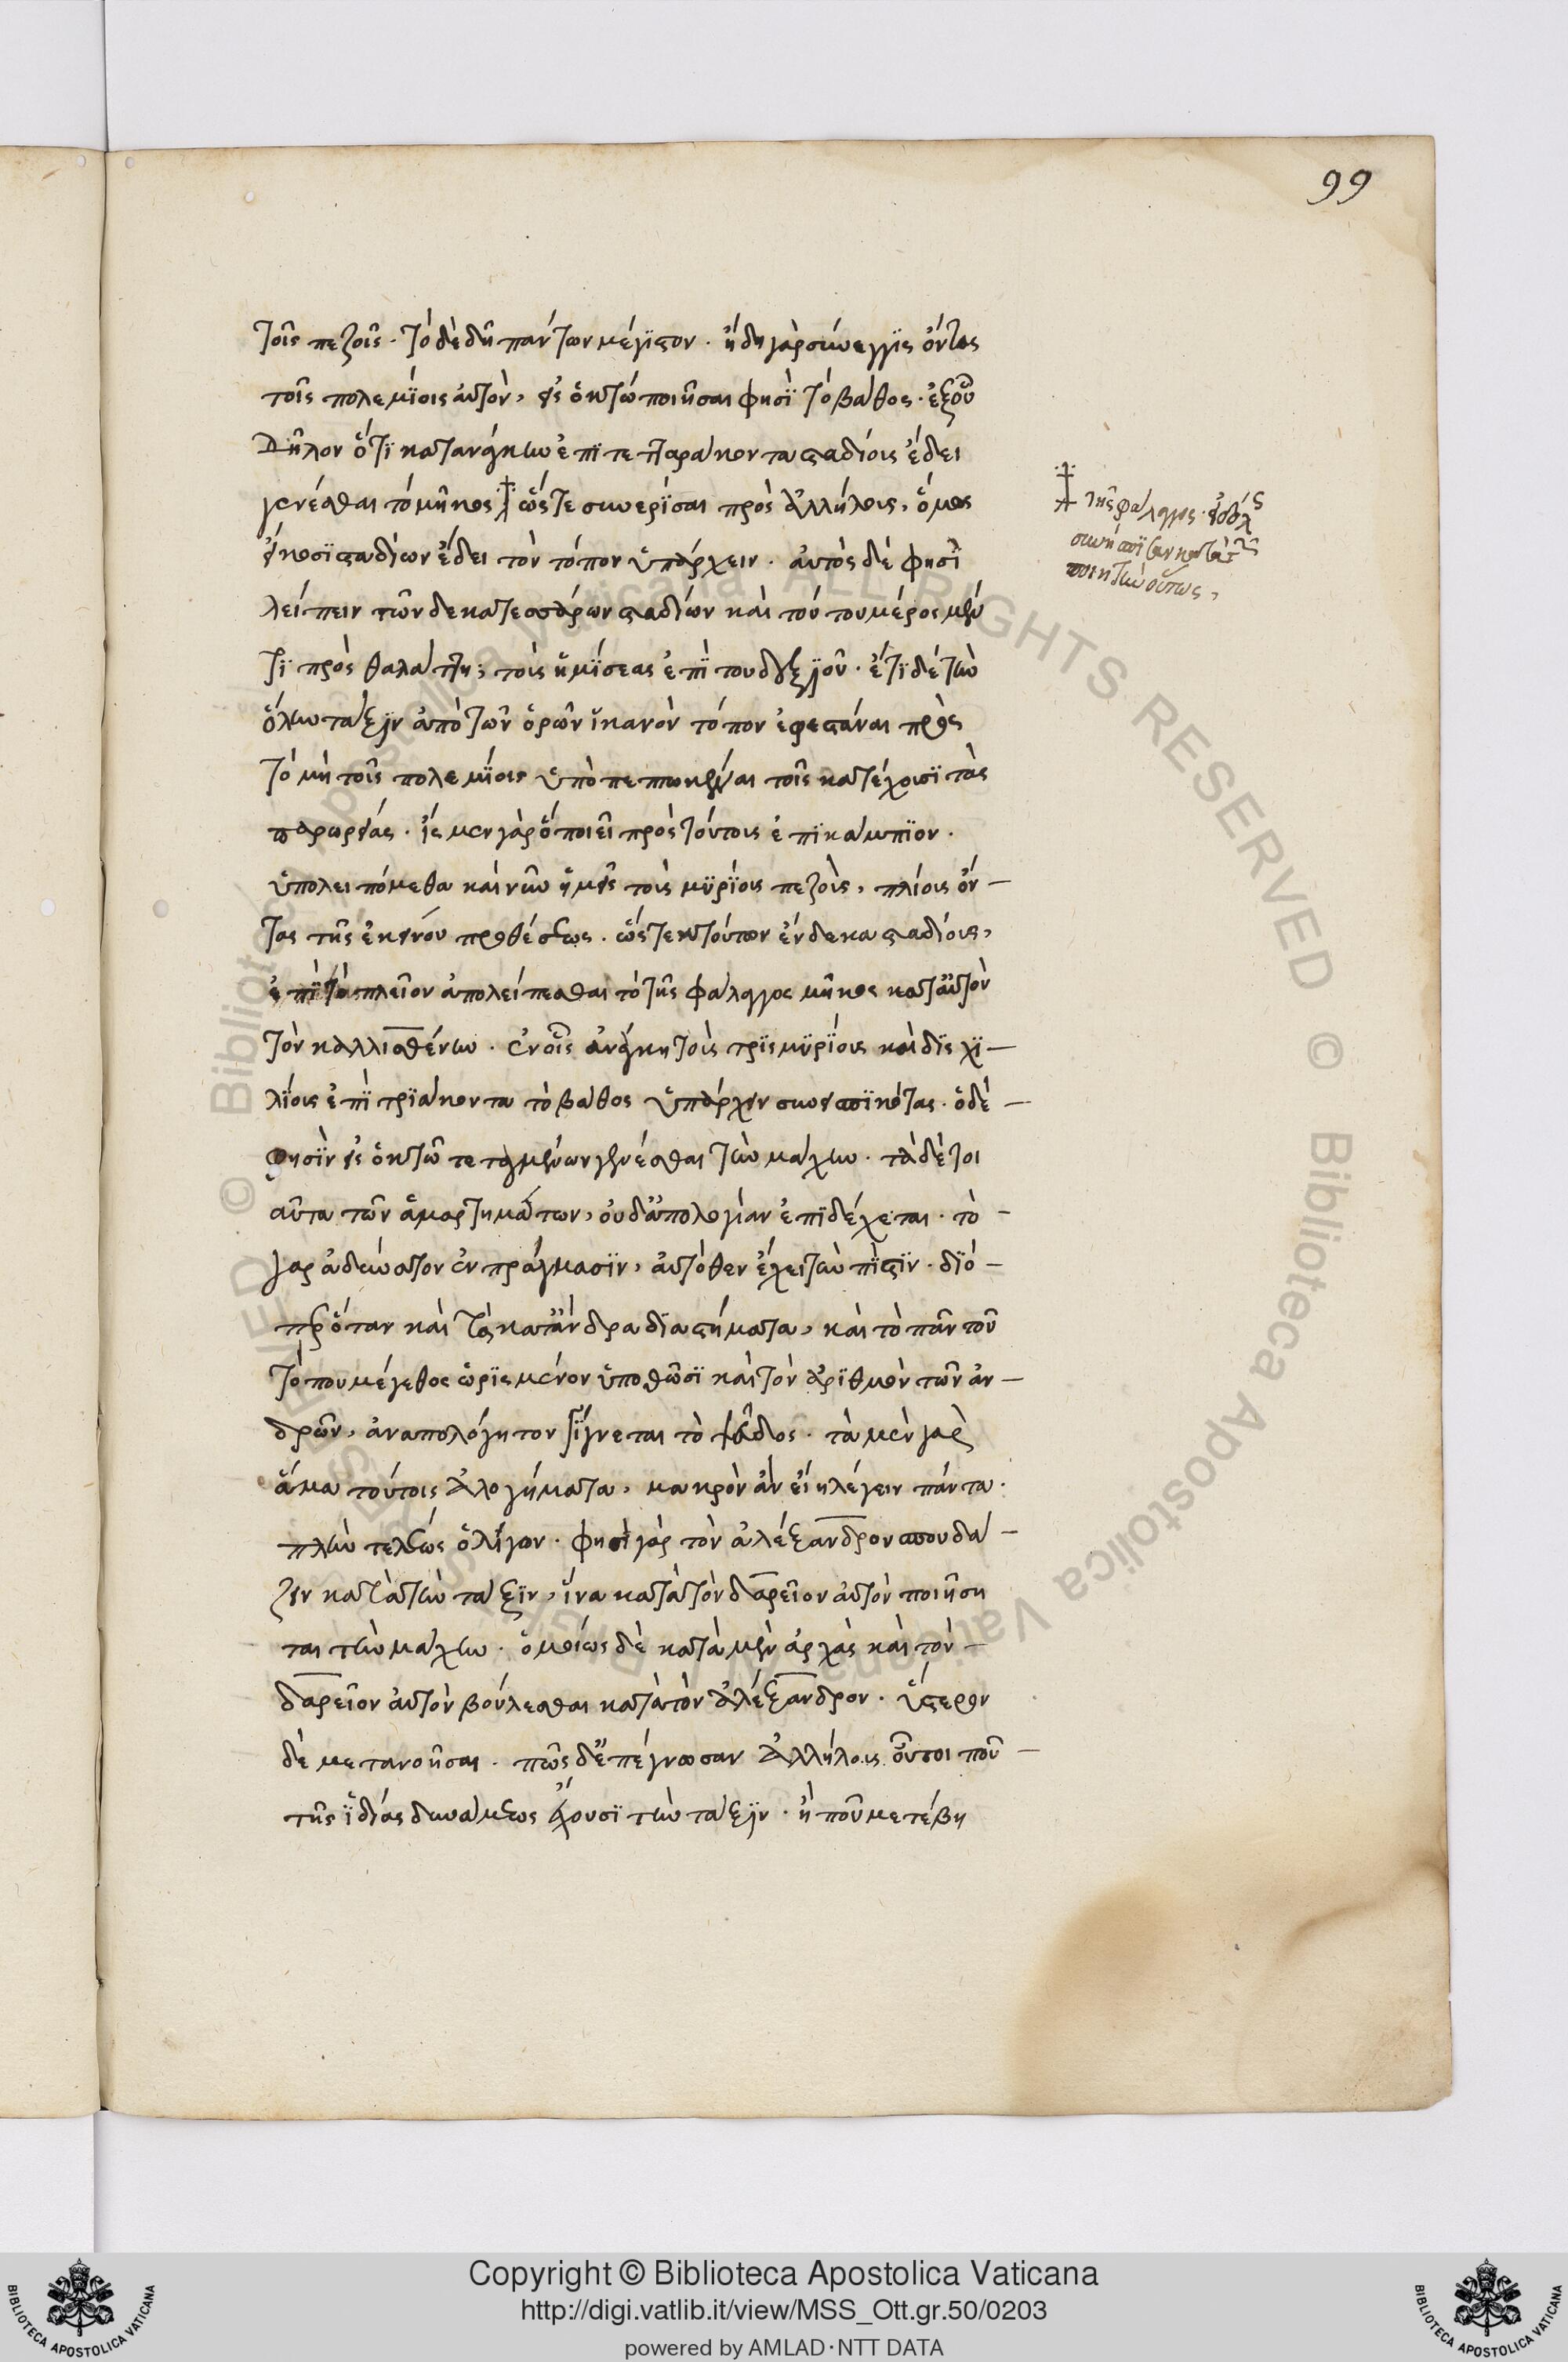 τοῖς πεζοῖς. τὸ δὲ δὴ πάντων μέγϊστον. ἤδη γὰρ σύνεγγϊς ὄντας
τοῖς πολεμΐοις αὐτὸν, εἰς ὀκτὼ ποιῆσαι φησῒ τὸ βάθος. ἐξοὗ
δῆλον ὅτϊ κατανάγκην ἐπῒ τετταράκοντα σταδίους ἔδει
γενέσθαι τὸ μῆκος ὥστε συνερῒσαι πρὸς ἀλλήλους, ὅμως
εἴκοσϊ σταδίων ἔδει τὸν τόπον ὑπάρχειν. αὐτὸς δέ φησῒ
λείπειν τῶν δεκατεσσάρων σταδίων καὶ τούτου μέρος μέν
τϊ πρὸς θαλάττη; τοὺς ἡμΐσεας ἐπῒ του δεξϊοῦ. ἔτϊ δὲ τὴν
ὅλην τάξϊν ἀπὸ τῶν ὁρῶν ἵκανὸν τόπον ἐφεστάναι πρὸς
τὸ μὴ τοῖς πολεμΐοις ὑπὸπεπτωκέναι τοῖς κατέχουσϊ τὰς
παρωρείας. ἴσμεν γὰρ ὃ ποιεῖ πρὸς τούτοις ἐπϊκάμπϊον.
ὑπολειπόμεθα καὶ νῦν ἡμεῖς τοὺς μϋρΐους πεζοὺς, πλίους ὄν-
τας τῆς ἐκείνου προθέσεως. ὥστ' ἐκτούτων ἕνδεκα σταδίους,
ἐπῒ τὸ πλεῖον ἀπολείπεσθαι τὸ τῆς φάλαγγος μῆκος κατ' αὐτὸν
τὸν καλλισθένην. ἐν οἷς ἀνάγκη τοὺς τρϊσμϋρΐους καὶ δϊσχϊ-
λΐους ἐπῒ τρϊάκοντα τὸ βάθος ὑπάρχειν συνεισπϊκότας. ὁδέ
φησῒν εἰς ὀκτῶ τεταγμένων γενέσθαι τὴν μάχην. τὰ δὲ τοι
αῦτα τῶν ἁμαρτημάτων, οὐδ' ἀπολογίαν ἐπϊδέχεται. τὸ
γαρ ἀδύνατον ἐν πράγμασϊν, αὐτόθεν ἔχει τὴν πΐστϊν. δϊό-
περ ὅταν καὶ τὰ κατ' ἄνδρα δϊαστήματα, καὶ τὸ πᾶν τοῦ
τόπου μέγεθος ὡρϊσμένον ὑποθῶσϊ καὶ τὸν ἀρϊθμὸν τῶν ἀν-
δρῶν, ἀναπολόγητον γΐγνεται τὸ ψεῦδος. τὰ μὲν γαρ
ἅμα τούτοις ἀλογήματα, μακρὸν ἂν εἴη λέγειν πάντα.
πλὴν τελέως ὀλΐγων. φησὶ γὰρ τὸν ἀλέξανδρον σπουδά-
ζειν κατὰ τὴν τάξϊν, ἵνα κατὰ τὸν δαρεῖον αὐτὸν ποιήση
ται τὴν μάχην. ὁμοίως δὲ κατὰ μὲν ἀρχὰς καὶ τὸν-
δαρεῖον αὐτὸν βούλεσθαι κατὰ τὸν ἀλέξανδρον. ὕστερον
δὲ μετανοῆσαι. πῶς δ' ἐπέγνωσαν ἀλλήλους οὗτοι ποῦ-
τῆς ἰδίας δυνάμεως ἔχουσϊ τὴν τάξϊν. ἢ ποῦ μετέβη
τῆς φάλαγγος. εἰ δ' ὅλως
συνήσπϊσαν κατὰ τὸν
ποιητὴν οὕτως,
99
Copyright © Biblioteca Apostolica Vaticana
http://digi.vatlib.it/view/MSS_Ott.gr.50/0203
powered by AMLAD·NTT DATA
BIBLIOTECA APOSTOLICA VATICANA
BIBLIOTECA APOSTOLICA VATICANA